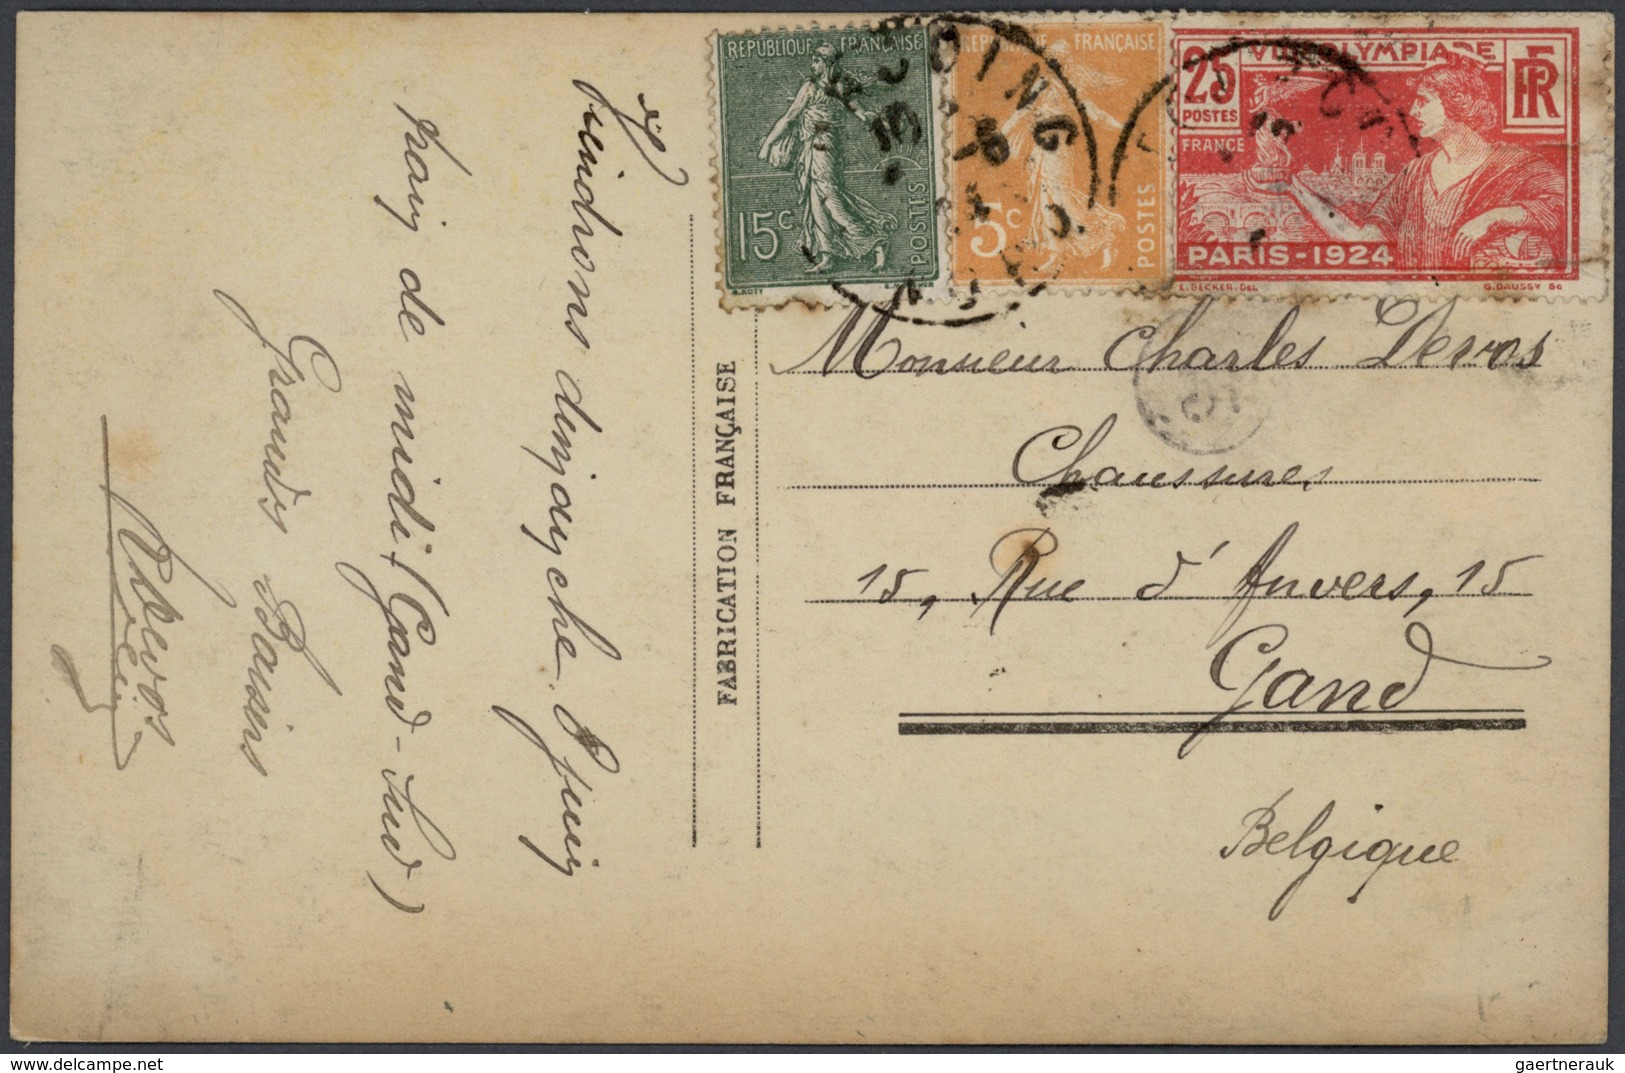 REPUBLIQUE FRANÇAISE
15c
POSTES
O. ROTY
REPUBLIQUE FRANÇAISE
5c
POSTES
VIIIe OLYMPIADE
25
POSTES
FRANCE
RF
PARIS-1924
E. BECKER. DEL.
G. DAUSSY Sc
viendrons dimanche 8 juin
train de midi (Gand-Sud)
Grands Baisers
FABRICATION FRANÇAISE
Monsieur Charles Devos
Chaussures
15, Rue d'Anvers, 15
Gand
Belgique
gaertnerauk @ delcampe.net